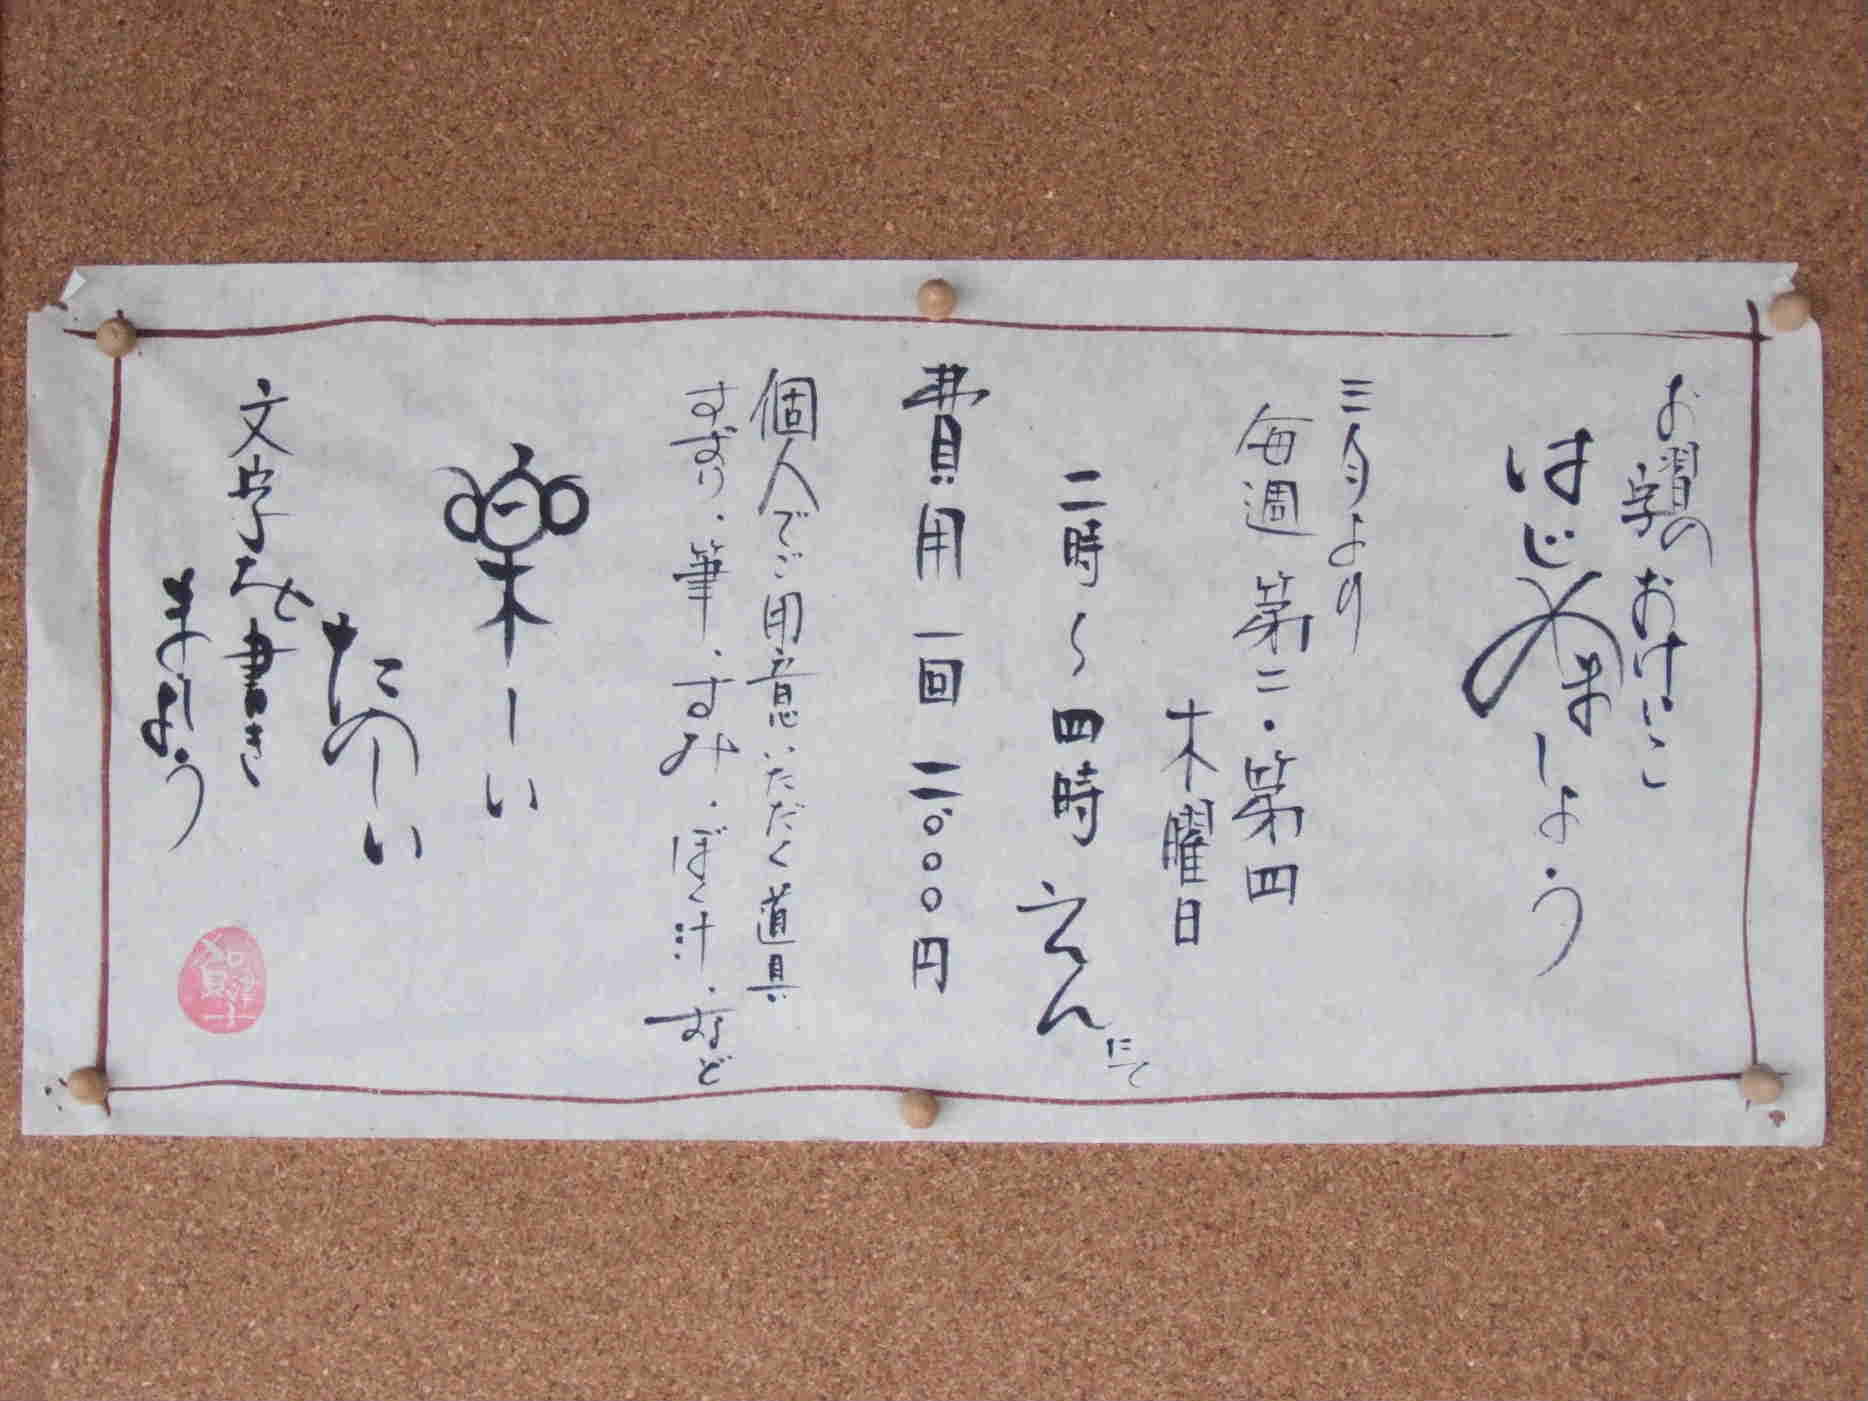 お習字のおけいこ
はじめましょう
三月より
毎週第二・第四
木曜日
二時～四時
えんにて
費用一回二、〇〇〇円
個人でご用意いただく道具
すずり・筆・すみ・ぼく汁・など
楽しい
たのしい
文字を書き
ましょう